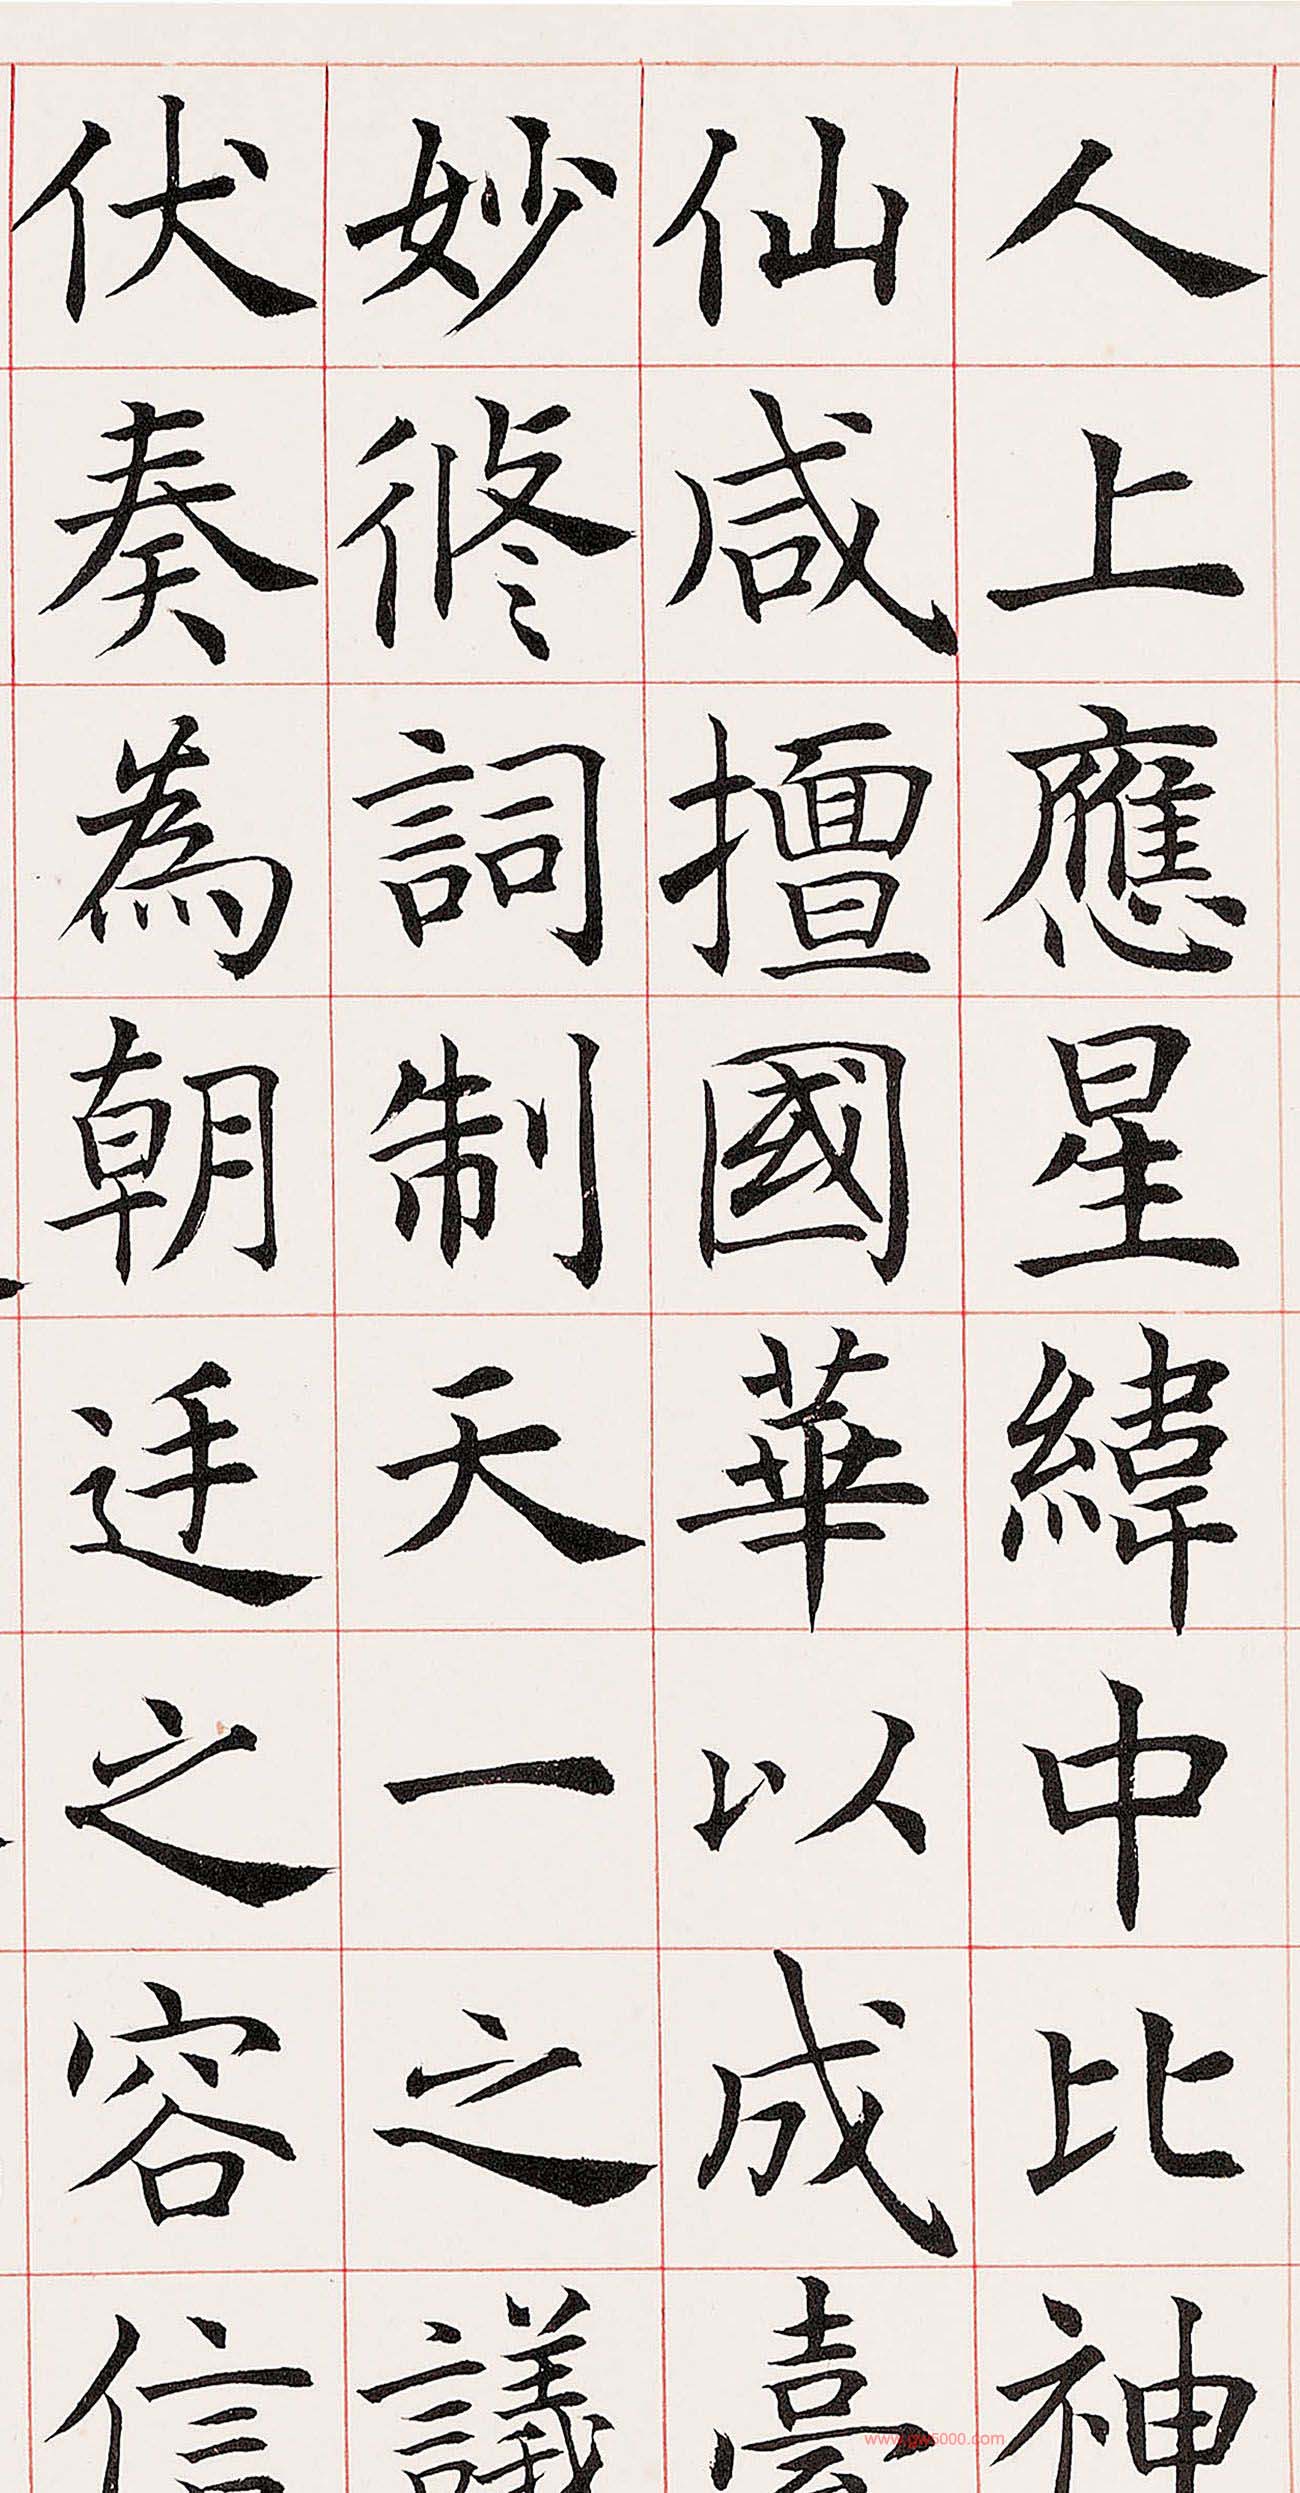 人上應星緯中比神
仙咸擅國華以成臺
妙修詞制天一之議
伏奏為朝廷之容信
www.gw5000.com